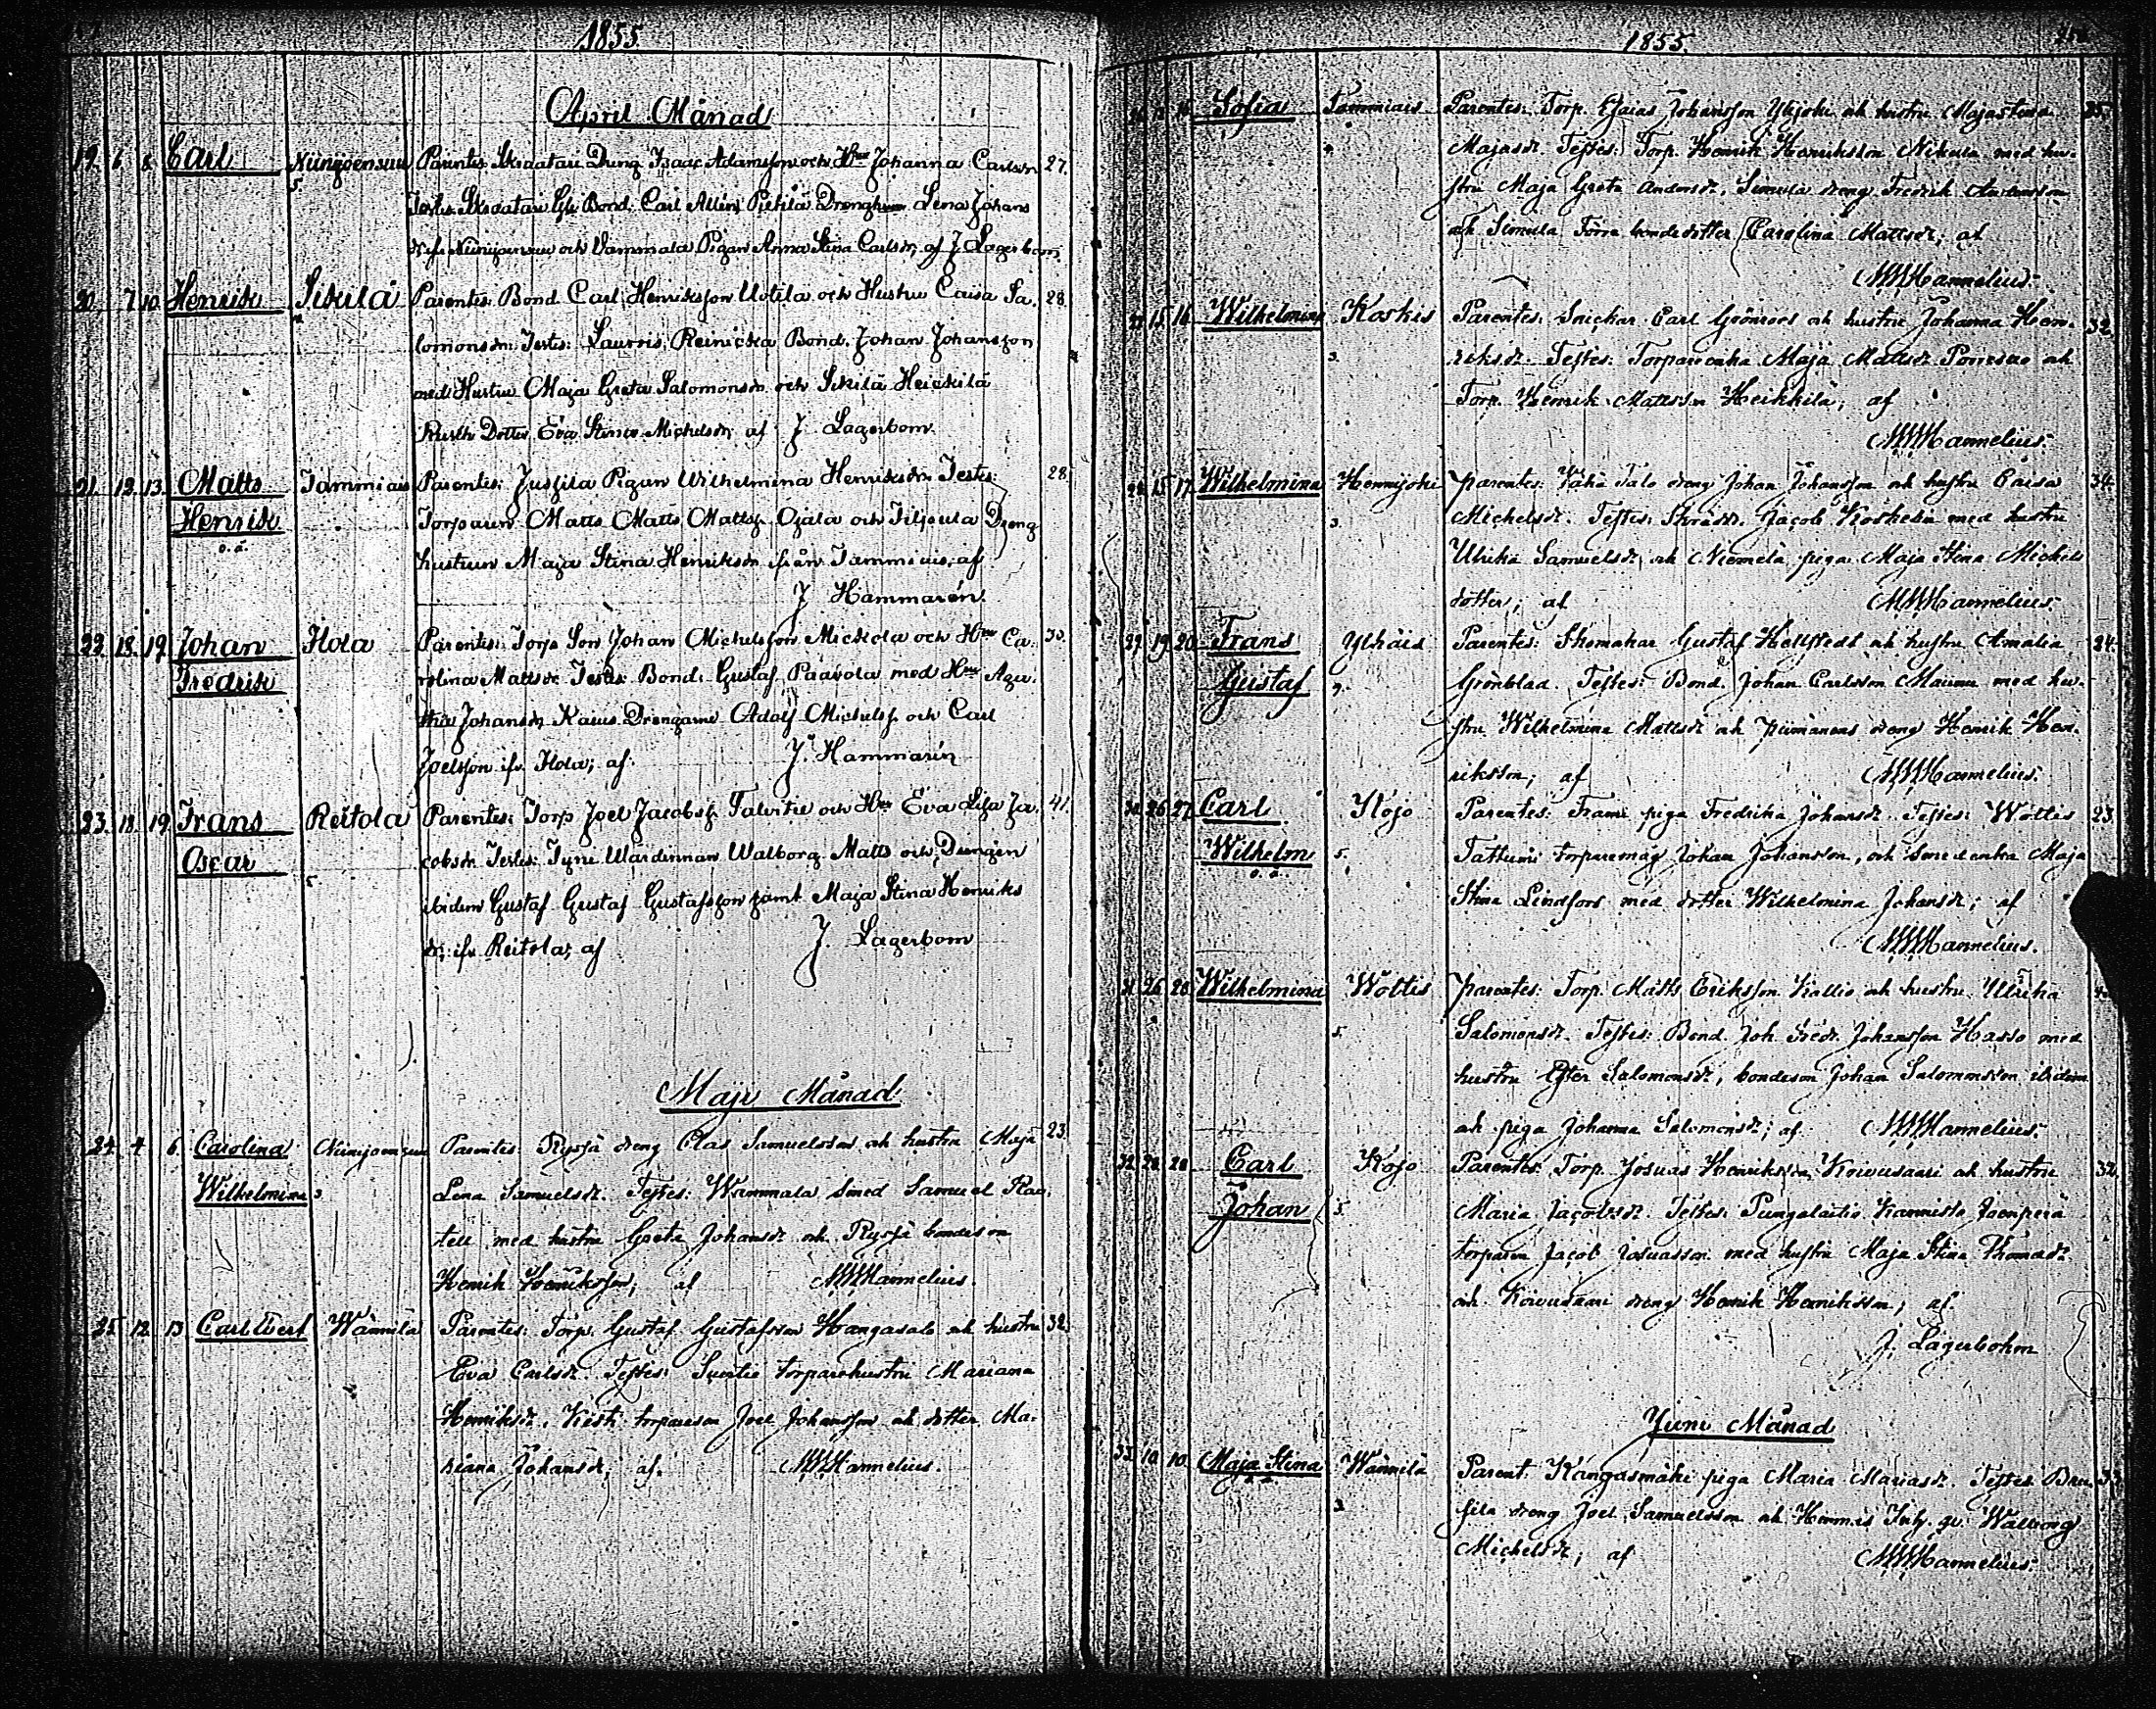 1855
April Månad
19. 6. 8. Carl Niinijoensuu Parentes: Skraatari Dreng Isaac Adamsson och Hru Johanna Carlsdr 27.
Testes: Skraatari Bond. Carl Pietilä Drenghu Lena Johans
dr ifr. Niinijoensuu och Vammala Pigan Anna Stina Carlsdr, af J. Lagerbom
20. 7. 10. Henrik Sikilä Parentes: Bond Carl Henriksson Uotila och Hustru Caisa Sa- 28.
lomonsdr. Testes: Laurois Reinicka Bond. Johan Johansson
med Hustru Maja Greta Salomonsdr och Sikilä Heickilä
Dotter Eva Stina Michelsdr, af J. Lagerbom.
21. 12. 13. Matts Tammiais Parentes: Jussila Pigan Wilhelmina Henriksdr. Testes: 28.
Henrik Torparen Matts Matts Mattss. Ojala och Dreng
o.ä. hustrun Maja Stina Henriksdr ifrån Tammiais, af
J Hammarén.
22. 18. 19. Johan Ilola Parentes: Torp. Son Johan Michelsson Mickola och Hru Ca- 30.
Fredrik rolina Mattsdr. Testes: Bond. Gustaf Paavola med Hru Aga-
tha Johansdr. Kaius Drengarne Adolf Michelss. och Carl
Joelsson ifr. Ilola; af J. Hammarén
23. 18. 19. Frans Reitola Parentes: Torp Joel Jacobss. Talvitie och Hru Eva Lisa Ja- 41.
Oscar cobsdr. Testes: Wärdinnan Walborg Mattsdr och Drengen
5. ibidem Gustaf Gustaf Gustafsson samt Maja Stina Henriks
dr; ifr Reitola; af J. Lagerbom
Maji Månad
24. 4. 6. Carolina Niinijoensuu Parentes: Rysä dreng Clas Samuelsson och hustru Maja 23.
Wilhelmina 3. Lena Samuelsdr. Testes: Wammala Smed Samuel
tell med hustru Greta Johansdr och Rysä bondeson
Henrik Henriksson; af Hannelius.
25. 12. 13. Carl Evert Wännilä Parentes: Torp. Gustaf Gustafsson Kangasalo och hustru 32.
Eva Carlsdr. Testes: torparehustru Mariana
Henriksdr. torpareson Joel Johansson och dotter Ma-
riana Johansdr, af Hannelius.
1855
16. Sofia Tammiais Parentes: Torp. Esaias Johansson Ylijoki och hustru Maja Stina 35.
Majasdr. Testes: Torp. Henrik Henriksson Nikula med hu-
stru Maja Greta Andersdr. Simula dreng Fredrik
och Simula Förra bondedotter Carolina Mattsdr; af
Hannelius.
27. 15. 16. Wilhelmina Koskis Parentes: Snickar Carl Grönroos och hustru Johanna Hen- 32.
3. riksdr. Testes: Torpareenka Maja Mattsdr och
Torp. Henrik Mattsson Heikkilä; af
Hannelius.
28. 15. 17. Wilhelmina Hennijoki Parentes: Vähä Talo dreng Johan Johansson och hustru Caisa 34.
3. Michelsdr. Testes: Skrädd. Jacob Koskelin med hustru
Ulrika Samuelsdr, och Niemelä piga Maja Stina Michels
dotter; af Hannelius.
29. 19. 20. Frans Yläis Parentes: Skomakar Gustaf Hellstedt och hustru Amalia 24.
Gustaf Grönblad. Testes: Bond. Johan Carlsson Maunu med hu-
stru Wilhelmina Mattsdr och dreng Henrik Hen-
riksson; af Hannelius.
30. 26. 27. Carl Kojo Parentes: Frami piga Fredrika Johansdr. Testes: Wöltis 23.
Wilhelm 5. torparemåg Johan Johansson, och Smedenka Maja
o.ä. Stina Lindfors med dotter Wilhelmina Johansdr; af
Hannelius.
31. 26. 28. Wilhelmina Wöltis Parentes: Torp. Matts Eriksson Kallio och hustru Ulrika
5. Salomonsdr. Testes: Bond. Joh. Fredr. Johansson Hasso med
hustru Ester Salomonsdr, bondeson Johan Salomonsson ibidem
och piga Johanna Salomonsdr; af Hannelius.
32. 28. 28. Carl Kojo Parentes: Torp. Josuas Henriksson Koivusaari och hustru 32.
Johan 5. Maria Jacobsdr. Testes: Kannisto Joenperä
torparen Jacob Josuasson med hustru Maja Stina Thomasdr
och Koivusaari dreng Henrik Henriksson; af
J. Lagerbohm
Juni Månad
33. 10. 10. Maja Stina Wännilä Parent. Kangasmäki piga Maria Mariasdr. Testes:
3. dreng Joel Samuelsson och Hemmis Inh. qv. Walborg
Michelsdr; af Hannelius.